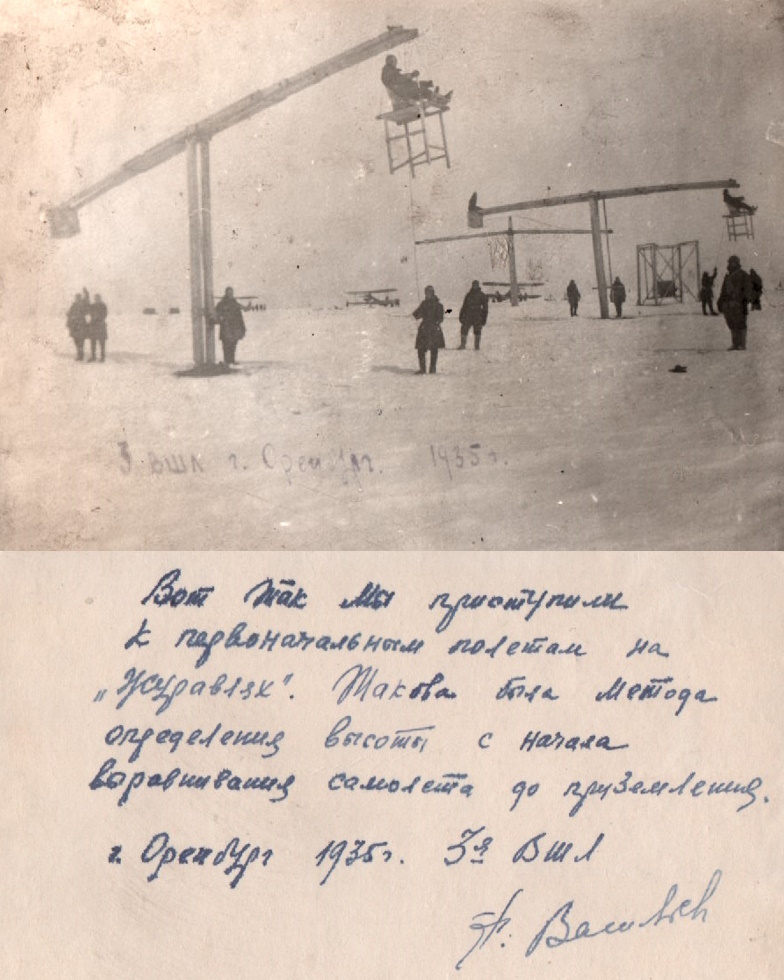 3 ВШЛ г. Оренбург. 1935 г.
Вот так мы приступили
к первоначальным полетам на
„Журавлях". Такова была метода
определения высоты с начала
выравнивания самолета до приземления.
г. Оренбург 1935 г. 3я ВШЛ